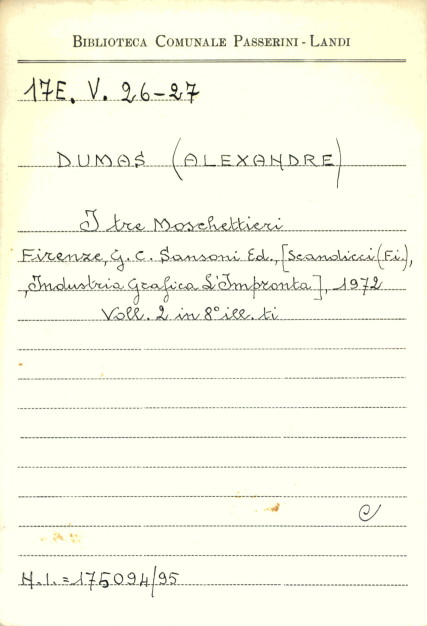 BIBLIOTECA COMUNALE PASSERINI - LANDI
17E. V. 26-27
DUMAS (ALEXANDRE)
I tre Moschettieri
Firenze, G. C. Sansoni Ed., [Scandicci (Fi.),
,Industria Grafica L'Impronta], 1972
Voll. 2 in 8° ill. ti
C
N.I.=175094/95